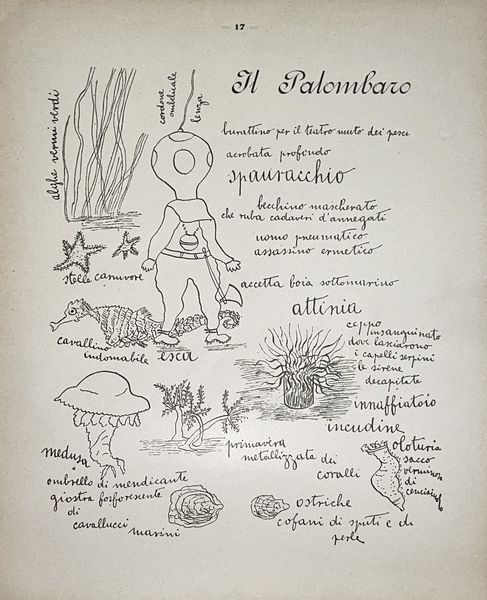 17
Il Palombaro
alghe vermi verdi
cordone
ombelicale
lenza
burattino per il teatro muto dei pesci
acrobata profondo
spauracchio
becchino mascherato
che ruba cadaveri d'annegati
uomo pneumatico
assassino ermetico
stelle carnivore
accetta boia sottomarino
attinia
ceppo
insanguinato
dove lasciarono
i capelli serpini
le sirene
decapitate
cavallino
indomabile
esca
innaffiatoio
incudine
medusa
ombrello di mendicante
giostra forforescente
di
cavallucci
marini
primavera
metallizzata dei
coralli
oloturia
sacco
verminoso
di
cenciaiuolo
ostriche
cofani di sputi e di
perle